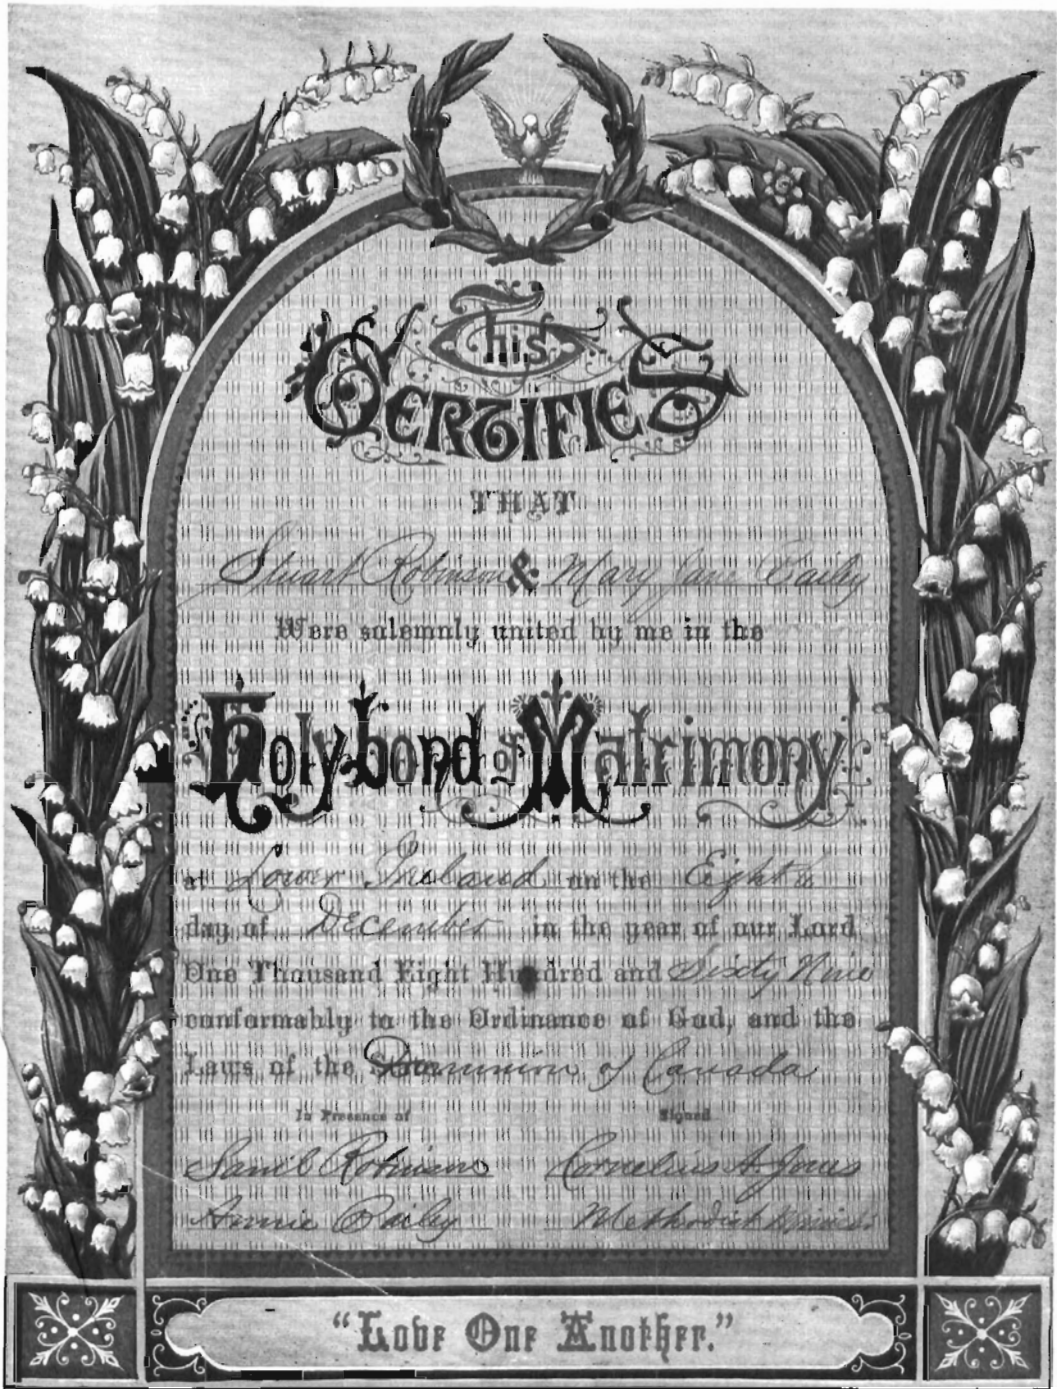 This
Certifies
THAT
Stuart Robinson & Mary Jane Baily
Were solemnly united by me in the
Holy bond of Matrimony
at Lower Ireland on the Eighth
day of December in the year of our Lord
One Thousand Eight Hundred and Sixty Nine
conformably to the Ordinance of God, and the
Laws of the Dominion of Canada
In Presence of Signed
Saml Robinson Cornelius A Jones
Annie Baily Methodist Minister
"Love One Another."